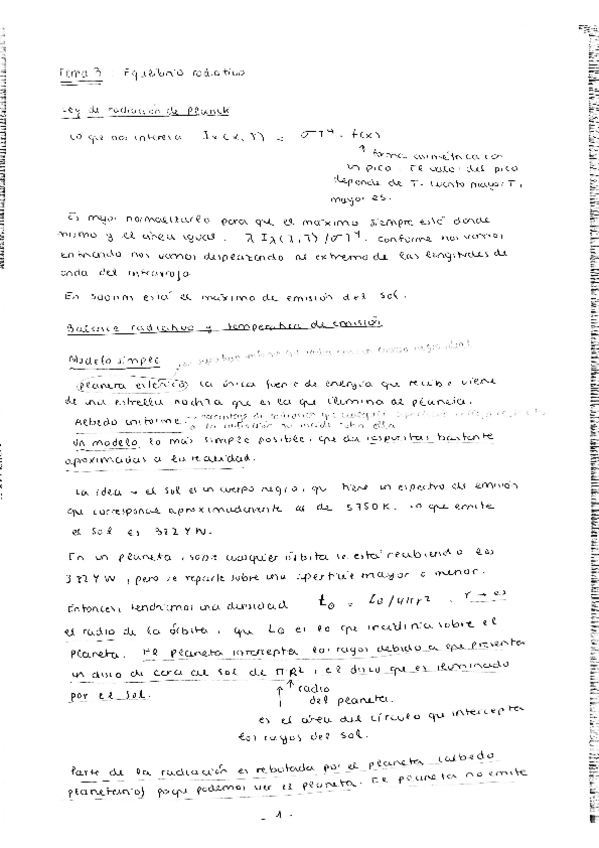 Tema 3. Equilibrio radiativo
Ley de radiación de Planck
Lo que nos interesa Iλ(λ,T) = σT⁴ · f(x)
↑ forma asimétrica con
un pico. El valor del pico
depende de T. Cuanto mayor T,
mayor es.
Es mejor normalizarlo para que el máximo siempre esté donde
mismo y el área igual. λ Iλ(λ,T)/σT⁴. Conforme nos vamos
enfriando nos vamos desplazando al extremo de las longitudes de
onda del infrarrojo.
En 500nm está el máximo de emisión del sol.
Balance radiativo y temperatura de emisión
Modelo simple
planeta esférico, la única fuente de energía que recibe viene
de una estrella nodriza que es la que ilumina al planeta.
Albedo uniforme.
Un modelo lo más simple posible, que da respuestas bastante
aproximadas a la realidad.
La idea → el sol es un cuerpo negro, que tiene un espectro de emisión
que corresponde aproximadamente al de 5750K. Lo que emite
el sol es 382YW.
En un planeta, sobre cualquier órbita se está recibiendo los
382YW, pero se reparte sobre una superficie mayor o menor.
Entonces, tendríamos una densidad L₀ / 4πr². r → es
el radio de la órbita, que es lo que incidiría sobre el
planeta. El planeta intercepta los rayos debido a que presenta
un disco de cara al sol de πR², el disco que es iluminado
por el sol.
↑ ↑ radio
del planeta.
es el área del círculo que intercepta
los rayos del sol.
Parte de la radiación es rebotada por el planeta (albedo
planetario) podemos ver el planeta. El planeta no emite
- 1 -